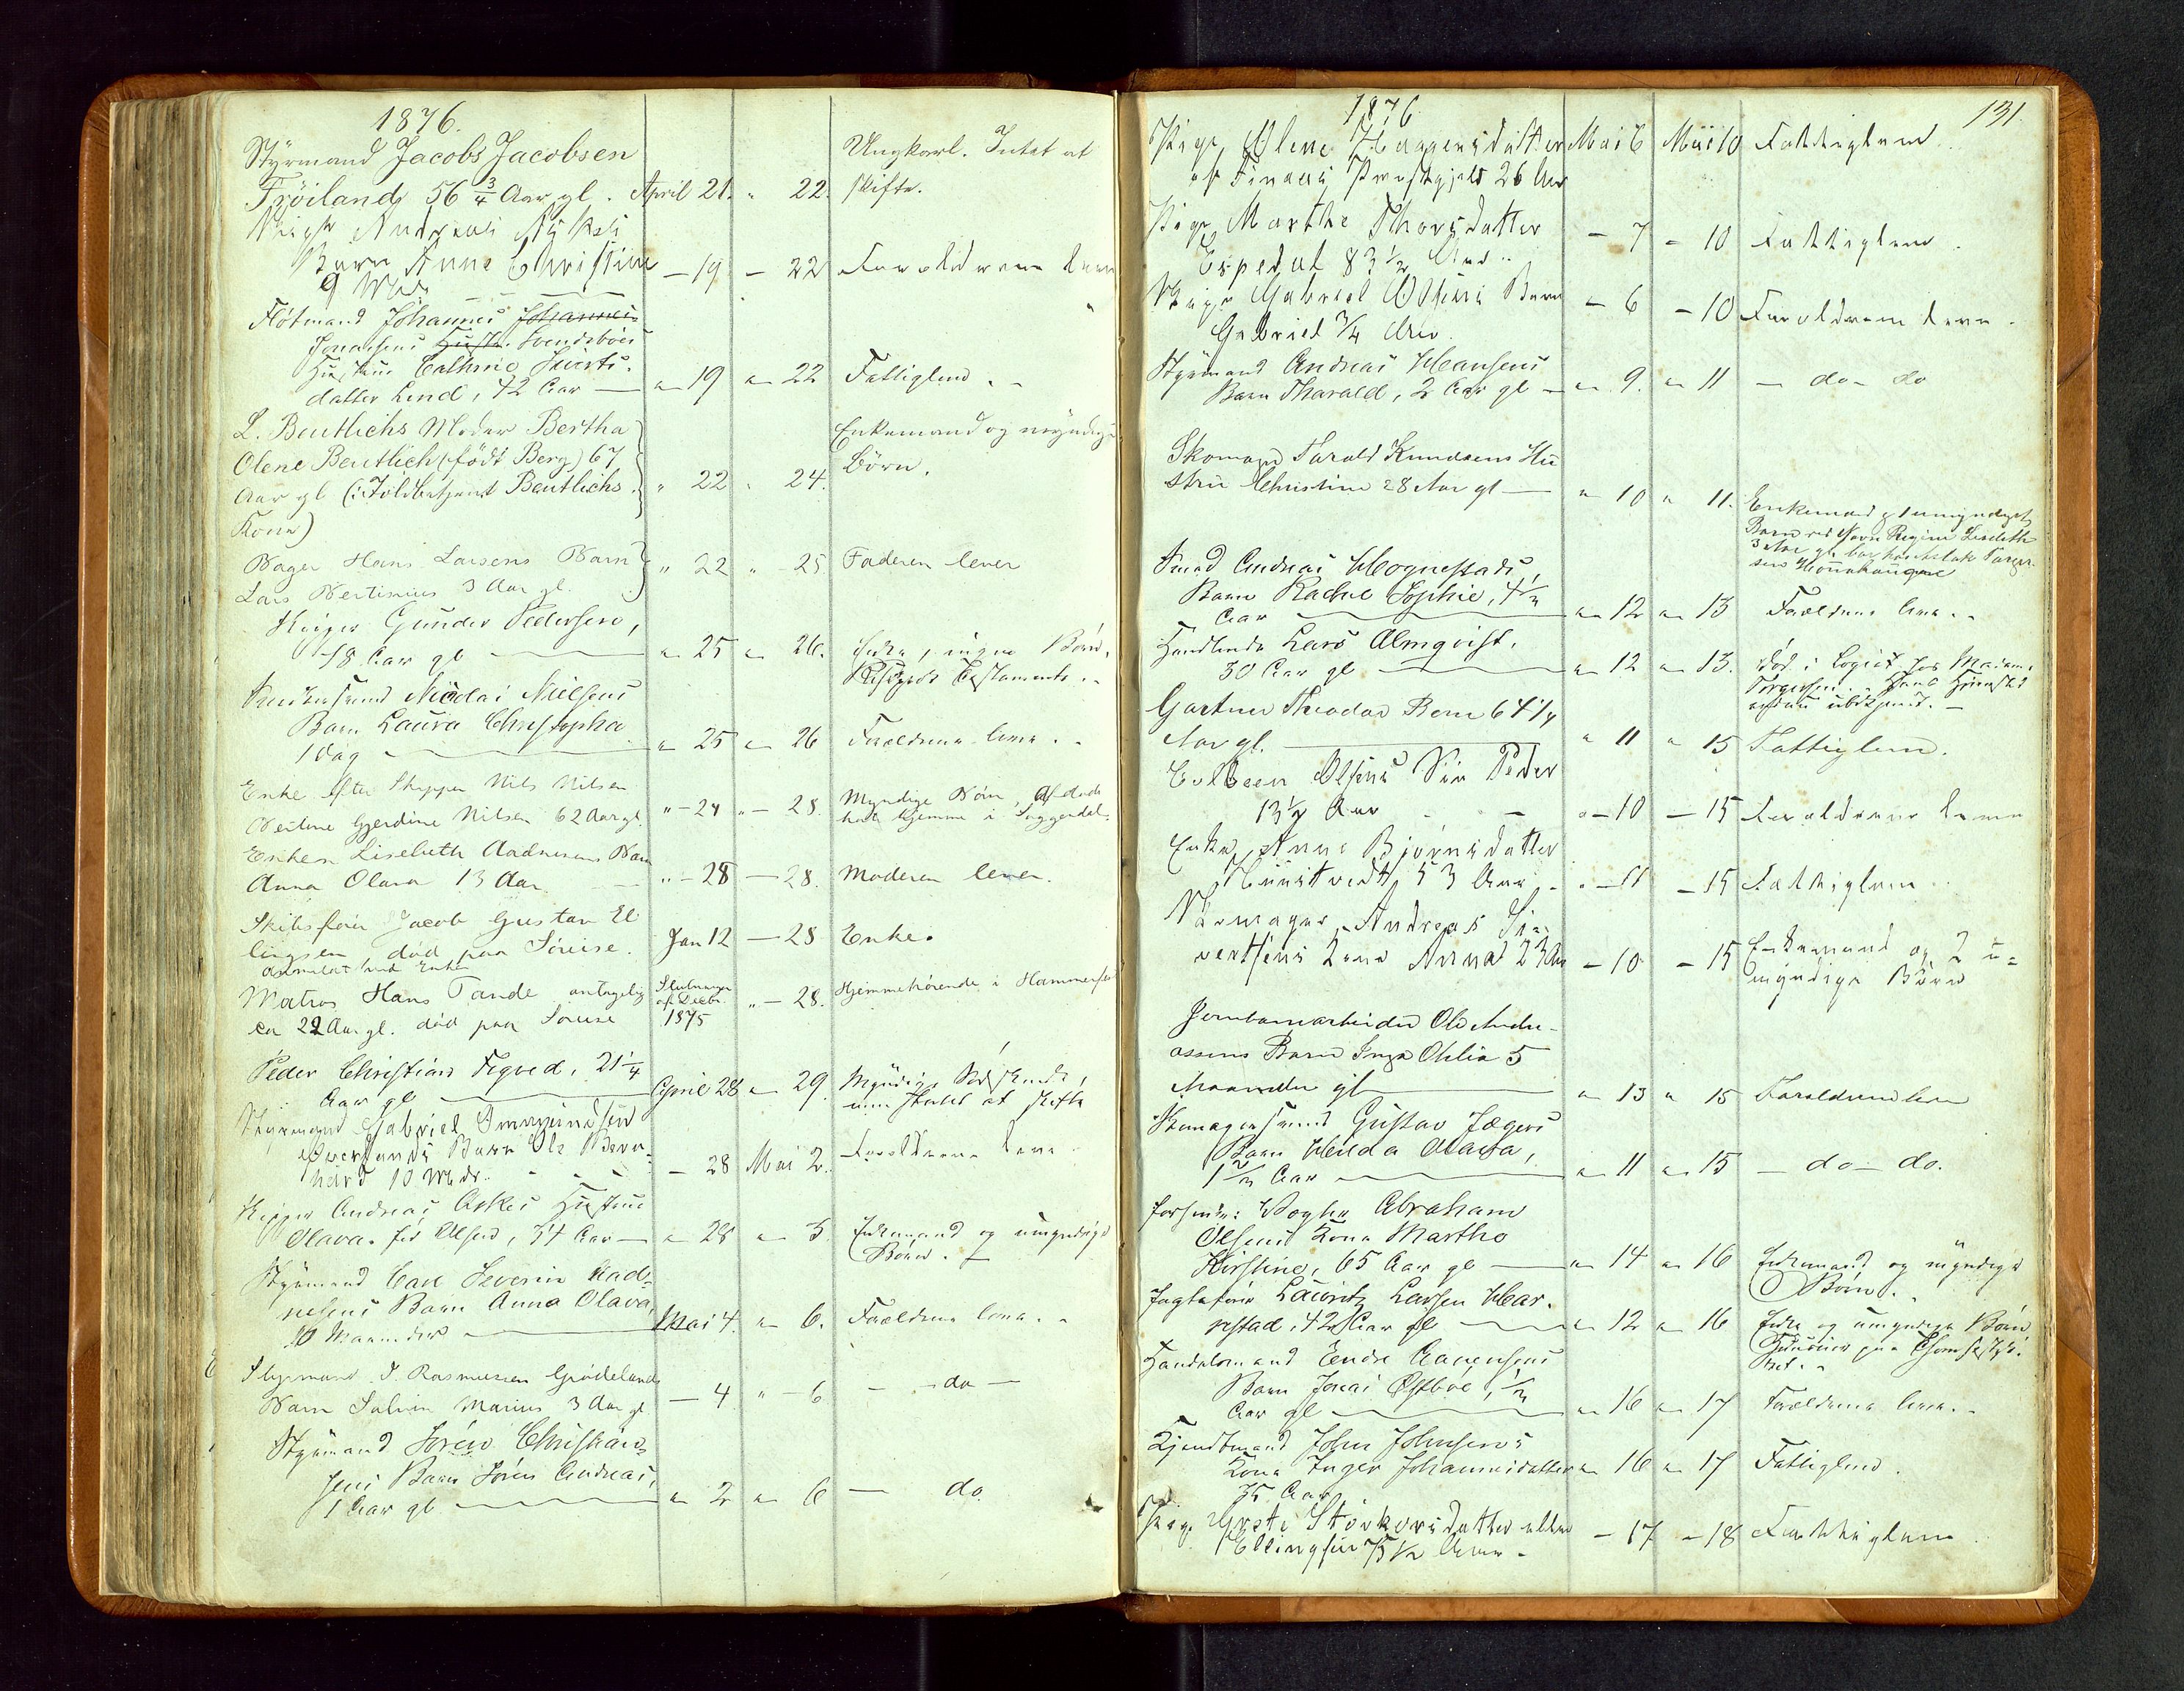 1876.
Styrmand Jacobs Jacobsen
Frøiland, 56 3/4 Aar gl. April 21. " 22. Ungkarl. Intet at skifte.
Andreas
Barn Anne Christine
9 Mdr — 19 — 22 Forældrene lever
Fløtmand Johannes Johannes
Jonassens Hustr. Svendsbøes
Hustru Cathrine Sivertsdatter Lend, 42 Aar — " 19 " 22 Fattiglem.
L. Bentlichs Moder Bertha
Olene Bentlich (født Berg) 67
Aar gl (: Toldbetjent Bentlichs
Kone) " 22 " 24. Enkemand og myndige Børn.
Bager Hans Larsens Barn
Lars Bertinius 3 Aar gl. " 22 " 25 Faderen lever
Gunder Pedersen,
78 Aar gl — " 25 " 26. Enke, ingen Børn.
Nicolai Nielsens
Barn Laura Christopha
1 Dag — " 25 " 26 Forældrene leve.
Enke efter Skipper Nils Nilsen
Bertine Gjerdine Nilsen 62 Aar gl. " – 24 " – 28. Myndige Børn, Afdøde
havde hjemme i Soggendal.
Enken Lisebeth Aadnesens Barn
Anna Olava 13 Aar. — " – 28 — 28. Moderen lever.
Skibsfører Jacob Gustav El
lingsen død paa Søreise. Jan 12 — 28 Enke.
anmeldt ved Enken
Matros Hans Tande antagelig
ca 22 Aar gl. død paa Søreise Slutningen af Decbr. 1875 " – 28. Hjemmehørende i Hammerfest
Peder Christian Tegved, 21 1/4
Aar gl — April 28 " 29. Myndige Sødskende,
at skifte
Styrmand Gabriel Immanuelsen
Barn Ole Bern-
hard 10 Mdr. — 28 Mai 2. Forældrene leve
Andreas Askes Hustrue
Olava. fød Olsen, 34 Aar — " 28 " 3. Enkemand og umyndige
Børn.
Styrmand Carl Severin Aad-
nesens Barn Anna Olava,
10 Maaneder — Mai 4. " 6. Forældrene leve.
Styrmand T. Rasmussen Grødelands
Barn Salvin Marius 3 Aar gl. — 4 " – 6 — do —
Styrmand Søren Christian-
sens Barn Søren Andreas,
1 Aar gl. — " 2 " 6 — do
131.
1876
Pige Olene Haagensdatter Mai 6 Mai 10 Fattiglem.
af Finnøes Præstgjeld 26 Aar
Pige Marthe Thorsdatter
Espedal 83 1/2 Aar — 7 – 10 Fattiglem.
Gabriel Olsens Barn
Gabriel 3/4 Aar. — 6 – 10 Forældrene leve.
Styrmand Andreas Hansens
Barn Tharald, 2 Aar gl — " 9. " 11 — do – do
Skomager Tarald Knudsens Hu
stru Christine 28 Aar gl — " 10 " 11. Enkemand og 1 umyndigt
Barn ved Navn Regine Lisebeth
3 Aar gl.
Smed Andreas Hognestads
Barn Rachel Sophie, 4 1/2
Aar — " 12 " 13 Forældrene leve.
Handlende Lars Almqvist,
30 Aar gl — " 12 " 13. Død i Logiet hos Madam
Torgersen.
Gartner Theodor Berre 64 1/4
Aar gl. — " 11 " 15 Fattiglem.
Olsens Søn Peder
13 1/2 Aar — " – 10 – 15 Forældrene leve
Enke Anne Bjørnsdatter
53 Aar — " – 11 – 15 Fattiglem.
Andreas Si-
vertsens Kone Anna 23 Aar — 10 – 15 Enkemand og 2 u-
myndige Børn
Jernbanearbeider Ole Andre-
assens Barn Inga Otilia 5
Maaneder gl — " 13 " 15 Forældrene leve
Skomagersvend Gustav Jægers
Barn Hilda Olava,
1 1/2 Aar — " 11 " 15 — do – do.
Abraham
Olsens Kone Martha
Kirstine, 65 Aar gl — " 14 " 16 Enkemand og myndige
Børn.
Jagtefører Lauritz Larsen Har-
estad, 42 Aar gl — " 12 " 16 Enke og umyndige Børn
Handelsmand Endre Aanensens
Barn Jonas Østbøe, 1/2
Aar gl — " 16 " 17 Forældrene leve.
John Johnsens
Kone Inger Johannesdatter " 16 " 17 Fattiglem.
75 Aar
Pige Størkersdatter eller
Ellingsen 75 1/2 Aar — 17 – 18 Fattiglem